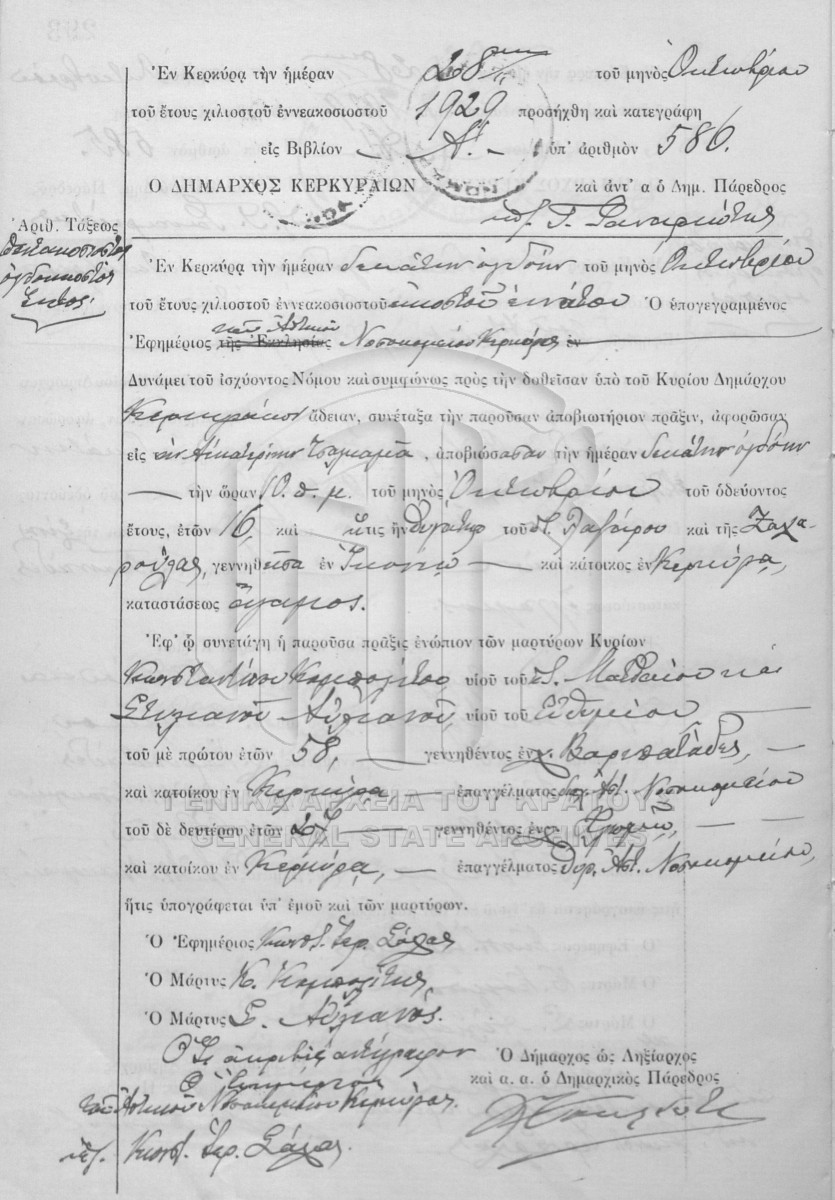 Ἐν Κερκύρᾳ τὴν ἡμέραν 28ην τοῦ μηνὸς Ὀκτωβρίου
τοῦ ἔτους χιλιοστοῦ ἐννεακοσιοστοῦ 1929 προσήχθη καὶ κατεγράφη
εἰς Βιβλίον Α. ὑπ' ἀριθμὸν 586.
Ο ΔΗΜΑΡΧΟΣ ΚΕΡΚΥΡΑΙΩΝ καὶ ἀντ' α ὁ Δημ. Πάρεδρος
ὑπ. Γ.
Ἀριθ. Τάξεως
πεντακοσιοστὸς
ὀγδοηκοστὸς
ἕκτος.
Ἐν Κερκύρᾳ τὴν ἡμέραν δεκάτην ὀγδόην τοῦ μηνὸς Ὀκτωβρίου
τοῦ ἔτους χιλιοστοῦ ἐννεακοσιοστοῦ εἰκοστοῦ ἐνάτου Ὁ ὑπογεγραμμένος
Ἐφημέριος τῆς Ἐκκλησίας τοῦ Ἀστικοῦ Νοσοκομείου Κερκύρας ἐν
Δυνάμει τοῦ ἰσχύοντος Νόμου καὶ συμφώνως πρὸς τὴν δοθεῖσαν ὑπὸ τοῦ Κυρίου Δημάρχου
Κερκυραίων ἄδειαν, συνέταξα τὴν παροῦσαν ἀποβιωτήριον πρᾶξιν, ἀφορῶσαν
εἰς τὴν Αἰκατερίνην, ἀποβιώσασαν τὴν ἡμέραν δεκάτην ὀγδόην
τὴν ὥραν 10. π. μ. τοῦ μηνὸς Ὀκτωβρίου τοῦ ὁδεύοντος
ἔτους, ἐτῶν 16 καὶ ἥτις ἦν θυγάτηρ τοῦ Λαζάρου καὶ τῆς Ζαχα-
ρούλας, γεννηθεῖσα ἐν καὶ κάτοικος ἐν Κερκύρᾳ,
καταστάσεως ἄγαμος.
Ἐφ' ᾧ συνετάγη ἡ παροῦσα πρᾶξις ἐνώπιον τῶν μαρτύρων Κυρίων
Κωνσταντίνου υἱοῦ τοῦ Ματθαίου καὶ
Στυλιανοῦ Αὐλιανοῦ, υἱοῦ τοῦ Εὐθυμίου
τοῦ μὲ πρώτου ἐτῶν 58, γεννηθέντος ἐν χ. Βαρυπατάδες,
καὶ κατοίκου ἐν Κερκύρᾳ ἐπαγγέλματος Ἀστ. Νοσοκομείου
τοῦ δὲ δευτέρου ἐτῶν 27 γεννηθέντος ἐν χ.
καὶ κατοίκου ἐν Κερκύρᾳ, ἐπαγγέλματος θυρ. Ἀστ. Νοσοκομείου,
ἥτις ὑπογράφεται ὑπ' ἐμοῦ καὶ τῶν μαρτύρων.
ΓΕΝΙΚΑ ΑΡΧΕΙΑ ΤΟΥ ΚΡΑΤΟΥΣ
GENERAL STATE ARCHIVES
Ὁ Ἐφημέριος Κωνστ. Ἱερ. Σάλας
Ὁ Μάρτυς Κ.
Ὁ Μάρτυς Σ. Αὐλιανός.
Ὅτι ἀκριβὲς ἀντίγραφον
Ὁ Ἐφημέριος
τοῦ Ἀστικοῦ Νοσοκομείου Κερκύρας.
ὑπ. Κωνστ. Ἱερ. Σάλας.
Ὁ Δήμαρχος ὡς Ληξίαρχος
καὶ α. α. ὁ Δημαρχικὸς Πάρεδρος